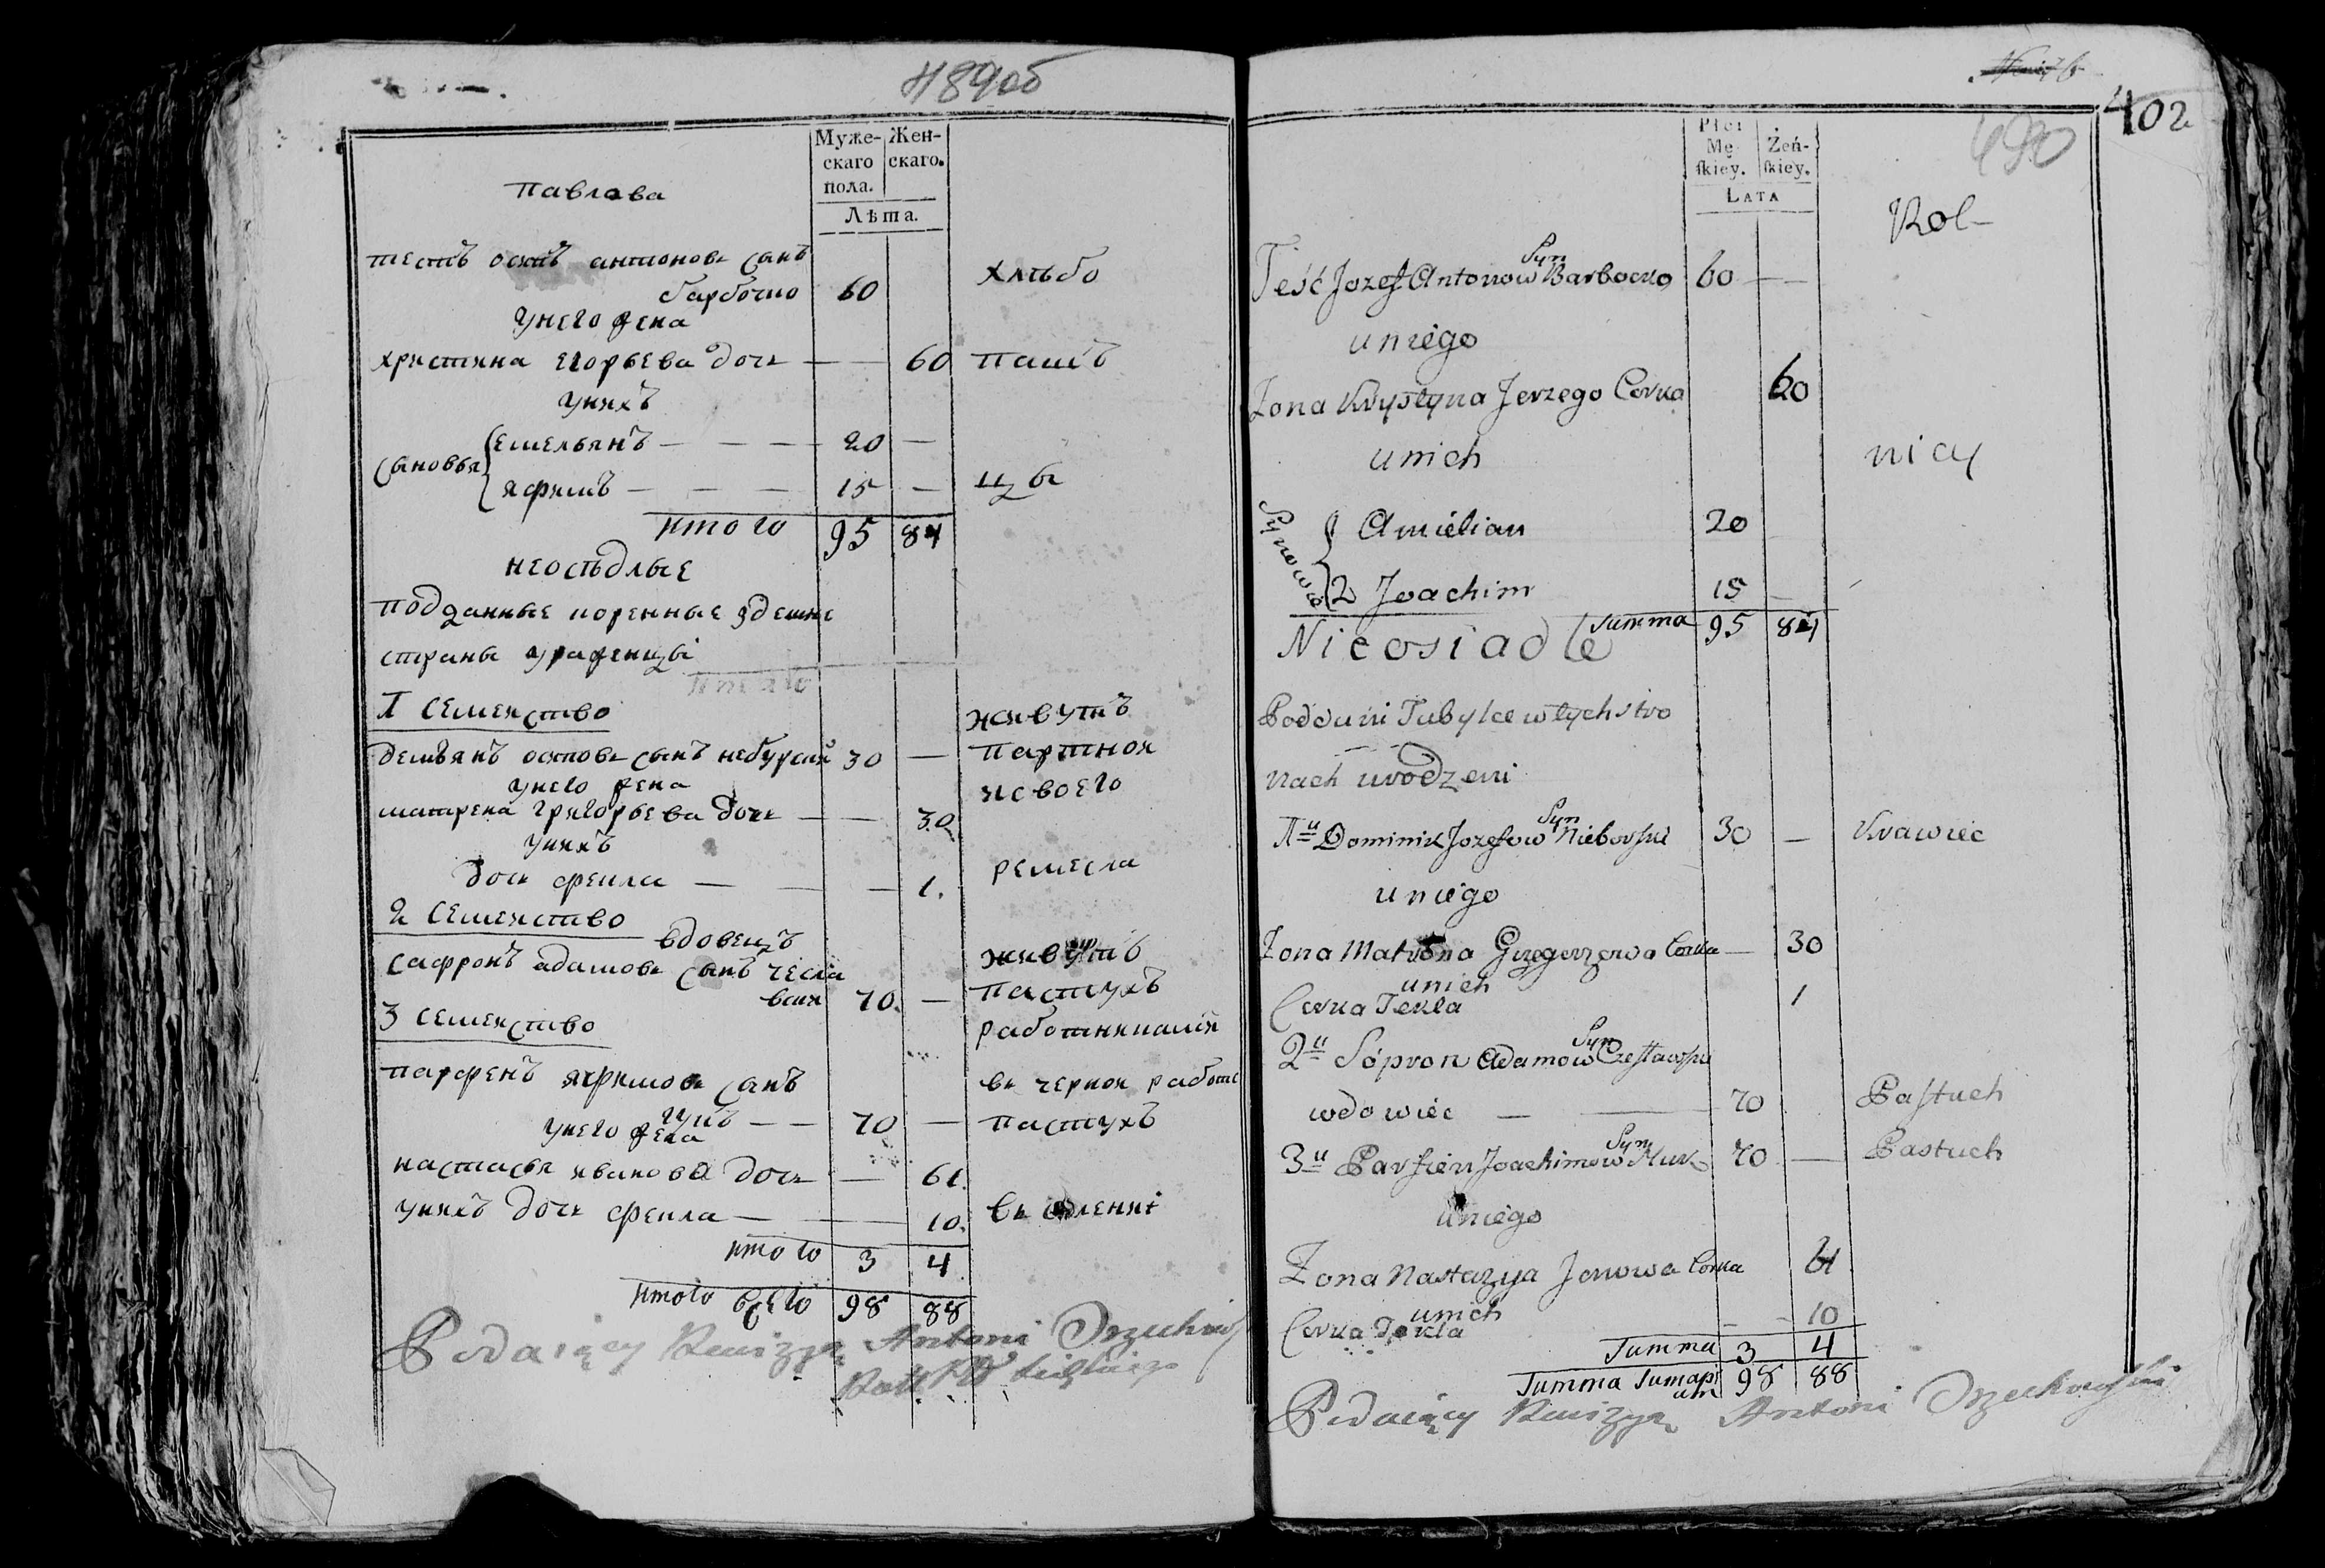 489об
Муже- Жен-
скаго скаго.
пола.
Лѣта.
павлова
тесть осипъ антоновъ сынъ
барбочко 60 хлѣбо
унего жена
христина егорьева дочь — 60 пашъ
унихъ
сыновья { емельянъ — — — 20 —
якимъ — — — 15 — цы
итого 95 84
неосѣдлые
подданные коренные здешне
страны уроженцы
итого
1 семейство живутъ
демьянъ осиповъ сынъ небурский 30 — партной
унего жена исвоего
матрена григорьева дочь — — 30
унихъ
дочь фекла — — — 1. ремесла
2 семейство
вдовецъ живутъ
сафронъ адамовъ сынъ чесла
вски 70. — пастухъ
3 семейство работникаміи
парфенъ якимовъ сынъ въ черной работе
гукъ — — 70 — пастухъ
унего жена
настасья иванова дочь — 61.
унихъ дочь фекла — — — 10.
итого 3 4
итого всего 98 88
Podaiący Rewizyą Antoni Orzechows
490
402
Płci
Mę Żeń-
ſkiey. ſkiey.
Lata
Rol-
Syn
Teść Jozef Antonow Barbocko 60 — —
uniego
Zona Krystyna Jerzego Corka 60
unich
nicy
Synowie { Amielian 20
2 Joachim 15 —
Summa 95 84
Nieosiadle
Poddani Tubylce wtych stro
nach urodzeni
Syn
1u Dominik Jozefow Nieborski 30 — Krawiec
uniego
Zona Matrona Grzegorzowa Corka — 30
unich
Corka Tekla 1
Syn
2u Sopron Adamow Czesławski
wdowiec — — 70 Pastuch
Syn
3u Parfien Joachimow Huk 70 — Pastuch
uniego
Zona Nastazya Janowa Corka 61
unich
Corka Tekla — — 10
Summa 3 4
Summa Sumari
um 98 88
Podaiący Rewizyą Antoni Orzechowski